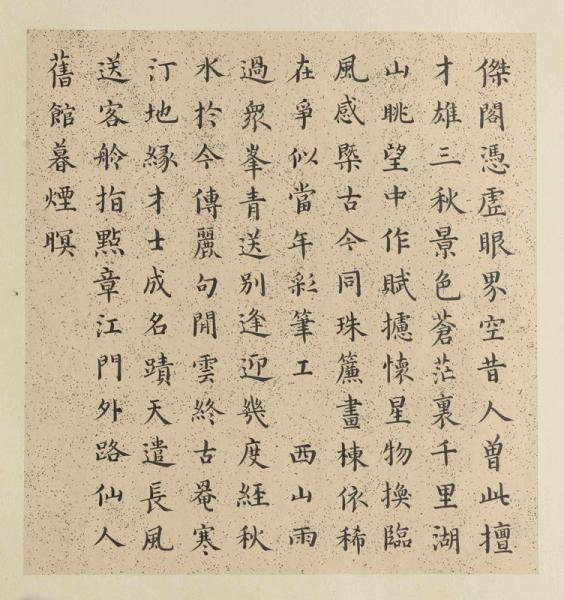 傑閣憑虛眼界空昔人曾此擅
才雄三秋景色蒼茫裏千里湖
山眺望中作賦攄懷星物換臨
風感槩古今同珠簾畫棟依稀
在爭似當年彩筆工 西山雨
過衆峯青送別逢迎幾度經秋
水於今傳麗句閒雲終古罨寒
汀地緣才士成名蹟天遣長風
送客舲指點章江門外路仙人
舊館暮煙暝